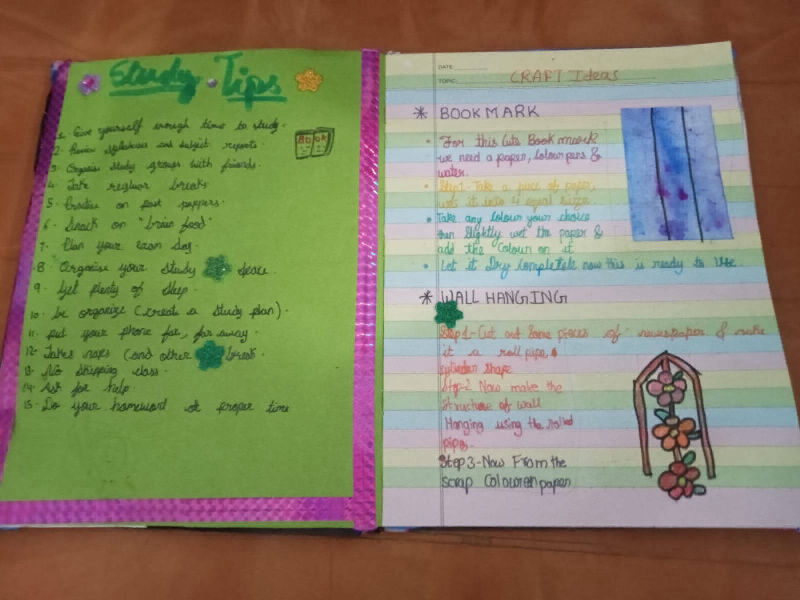 Study Tips
1. Give yourself enough time to study.
2. Review syllabuses and subject reports
3. Organise study groups with friends.
4. Take regluar breaks
5. Practise on past pappers.
6. Snack on "brain food"
7. Plan your exam day.
8. Organise your study space.
9. Get plenty of sleep.
10. be organize (create a study plan).
11. put your phone far, far away.
12. Takes naps (and other break
13. No skipping class.
14. Ask for help.
15. Do your homeword at proper time
BOOK
DATE:
TOPIC:
CRAFT Ideas
* BOOKMARK
• For this Cute Bookmark
we need a paper, Colour pens &
water.
• Step1- Take a piece of paper,
cut it into 4 equal size.
• Take any Colour your choice
then Slightly wet the paper &
add the Colour on it
• Let it Dry completele now this is ready to Use.
* WALL HANGING
Step 1- Cut out Some pieces of newspaper & make
it a roll pipe,
cylinder shape
Step-2 Now make the
Structure of wall
Hanging using the rolled
pipe.
Step 3-Now From the
scrap Colouren papen